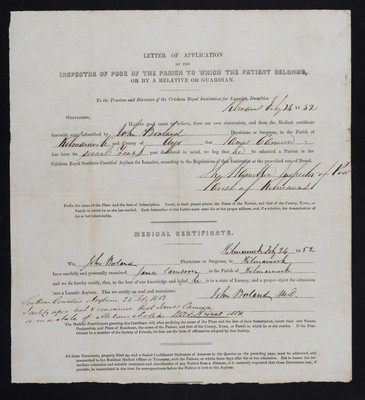 LETTER OF APPLICATION
BY THE
INSPECTOR OF POOR OF THE PARISH TO WHICH THE PATIENT BELONGS,
OR BY A RELATIVE OR GUARDIAN.
To the Trustees and Directors of the Crichton Royal Institution for Lunatics, Dumfries.
Kilmarnock July 24 1852
GENTLEMEN,
Having good cause to believe, from our own observation, and from the Medical certificate
herewith sent, subscribed by John Borland Physicians or Surgeons, in the Parish of
Kilmarnock and County of Ayr that James Cameron
has been for several years unsound in mind, we beg that he be admitted a Patient in the
Crichton Royal Southern Counties' Asylum for Lunatics, according to the Regulations of that Institution at the prescribed rate of Board.
Inspector of Poor
Parish of Kilmarnock
Prefix the name of the Place and the date of Subscription. Insert, in their proper places, the Name of the Patient, and that of the County, Town, or
Parish in which he or she has resided. Each Subscriber of this Letter must state his or her proper address, and, if a relative, the denomination of
his or her relationship.
MEDICAL CERTIFICATE.
Kilmarnock July 24 1852
We, John Borland Physicians or Surgeons, in Kilmarnock
have carefully and personally examined James Cameron in the Parish of Kilmarnock
and we do hereby certify, that, to the best of our knowledge and belief he is in a state of Lunacy, and a proper object for admission
into a Lunatic Asylum. This we certify on soul and conscience.
John Borland M.D.
Southern Counties Asylum 26 July 1852
I certify upon soul & conscience that James Cameron
is in a state of
The Medical Practitioners granting this Certificate will, after prefixing the name of the Place and the date of their Subscription, insert their own Names,
Designation, and Place of Residence, the name of the Patient, and that of the County, Town, or Parish in which he or she resides. If the Practitioner
be a member of the Society of Friends, he may use the form of affirmation adopted by that Society.
All these Documents, properly filled up, and a Sealed Confidential Statement of Answers to the Queries on the preceding page, must be addressed, and
transmitted to the Resident Medical Officer or Treasurer, with the Patient, or within three days after his or her admission. But to insure the immediate
reception and suitable treatment and classification of any Patient from a distance, it is earnestly requested that these Documents may, if
possible, be transmitted in due time for correspondence before the Patient is sent to the Asylum.